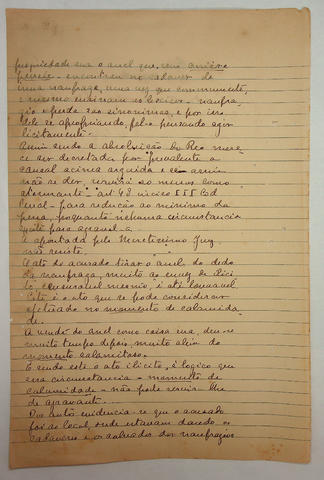 propriedade sua o anel que, sem arrière
pensée - encontrou no cadaver de
uma naufraga, uma vez que communmente,
e mesmo ensinam os lexicos - naufra-
gio e perda são sinonimos, e por isso
dele se apropriando, fel-o pensando agir
licitamente.
Assim sendo a absolvição do Reo mere-
ce ser decretada por prevalente a
causal acima arguida e assim
não se der, servirá ao menos como
dirimante - art 48 inciso III Cod
Penal - para redução ao minimo da
pena, porquanto nenhuma circunstancia
A apontada pelo Meretissimo Juiz
não existe.
O ato do acusado tirar o anel do dedo
da naufraga, muito ao envez de ilici-
to, censuravel mesmo, é até louvavel
Este é o ato que se pode considerar
efetuado no momento de calamida-
de.
A venda do anel como coisa sua, deu-se
muito tempo depois, muito alem do
momento calamitoso.
E sendo este o ato ilicito, é logico que
essa circunstancia - momento de
calamidade - não pode servir lhe
de agravante.
Dos autos evidencia-se que o acusado
foi ao local, onde estavam dando os
cadaveres e os salvados dos naufragios